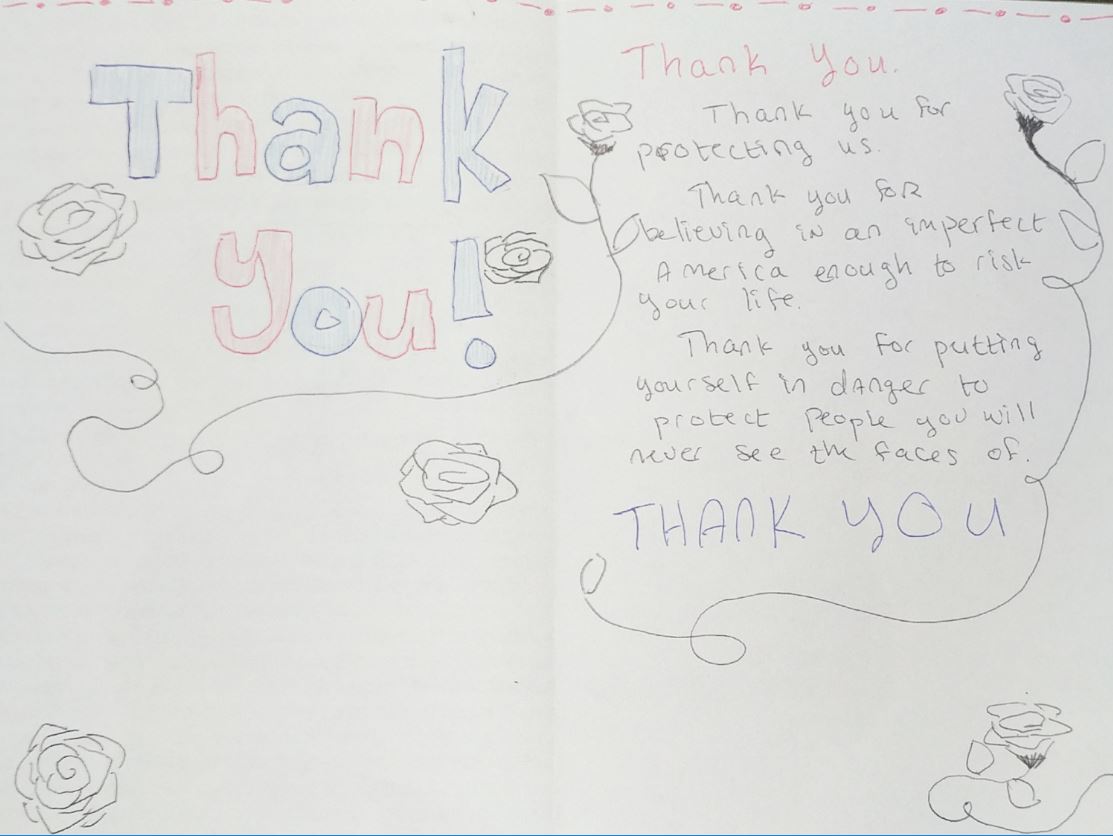 Thank
you!
Thank you.
Thank you for
protecting us.
Thank you for
believing in an imperfect
America enough to risk
your life.
Thank you for putting
yourself in danger to
protect people you will
never see the faces of.
THANK YOU